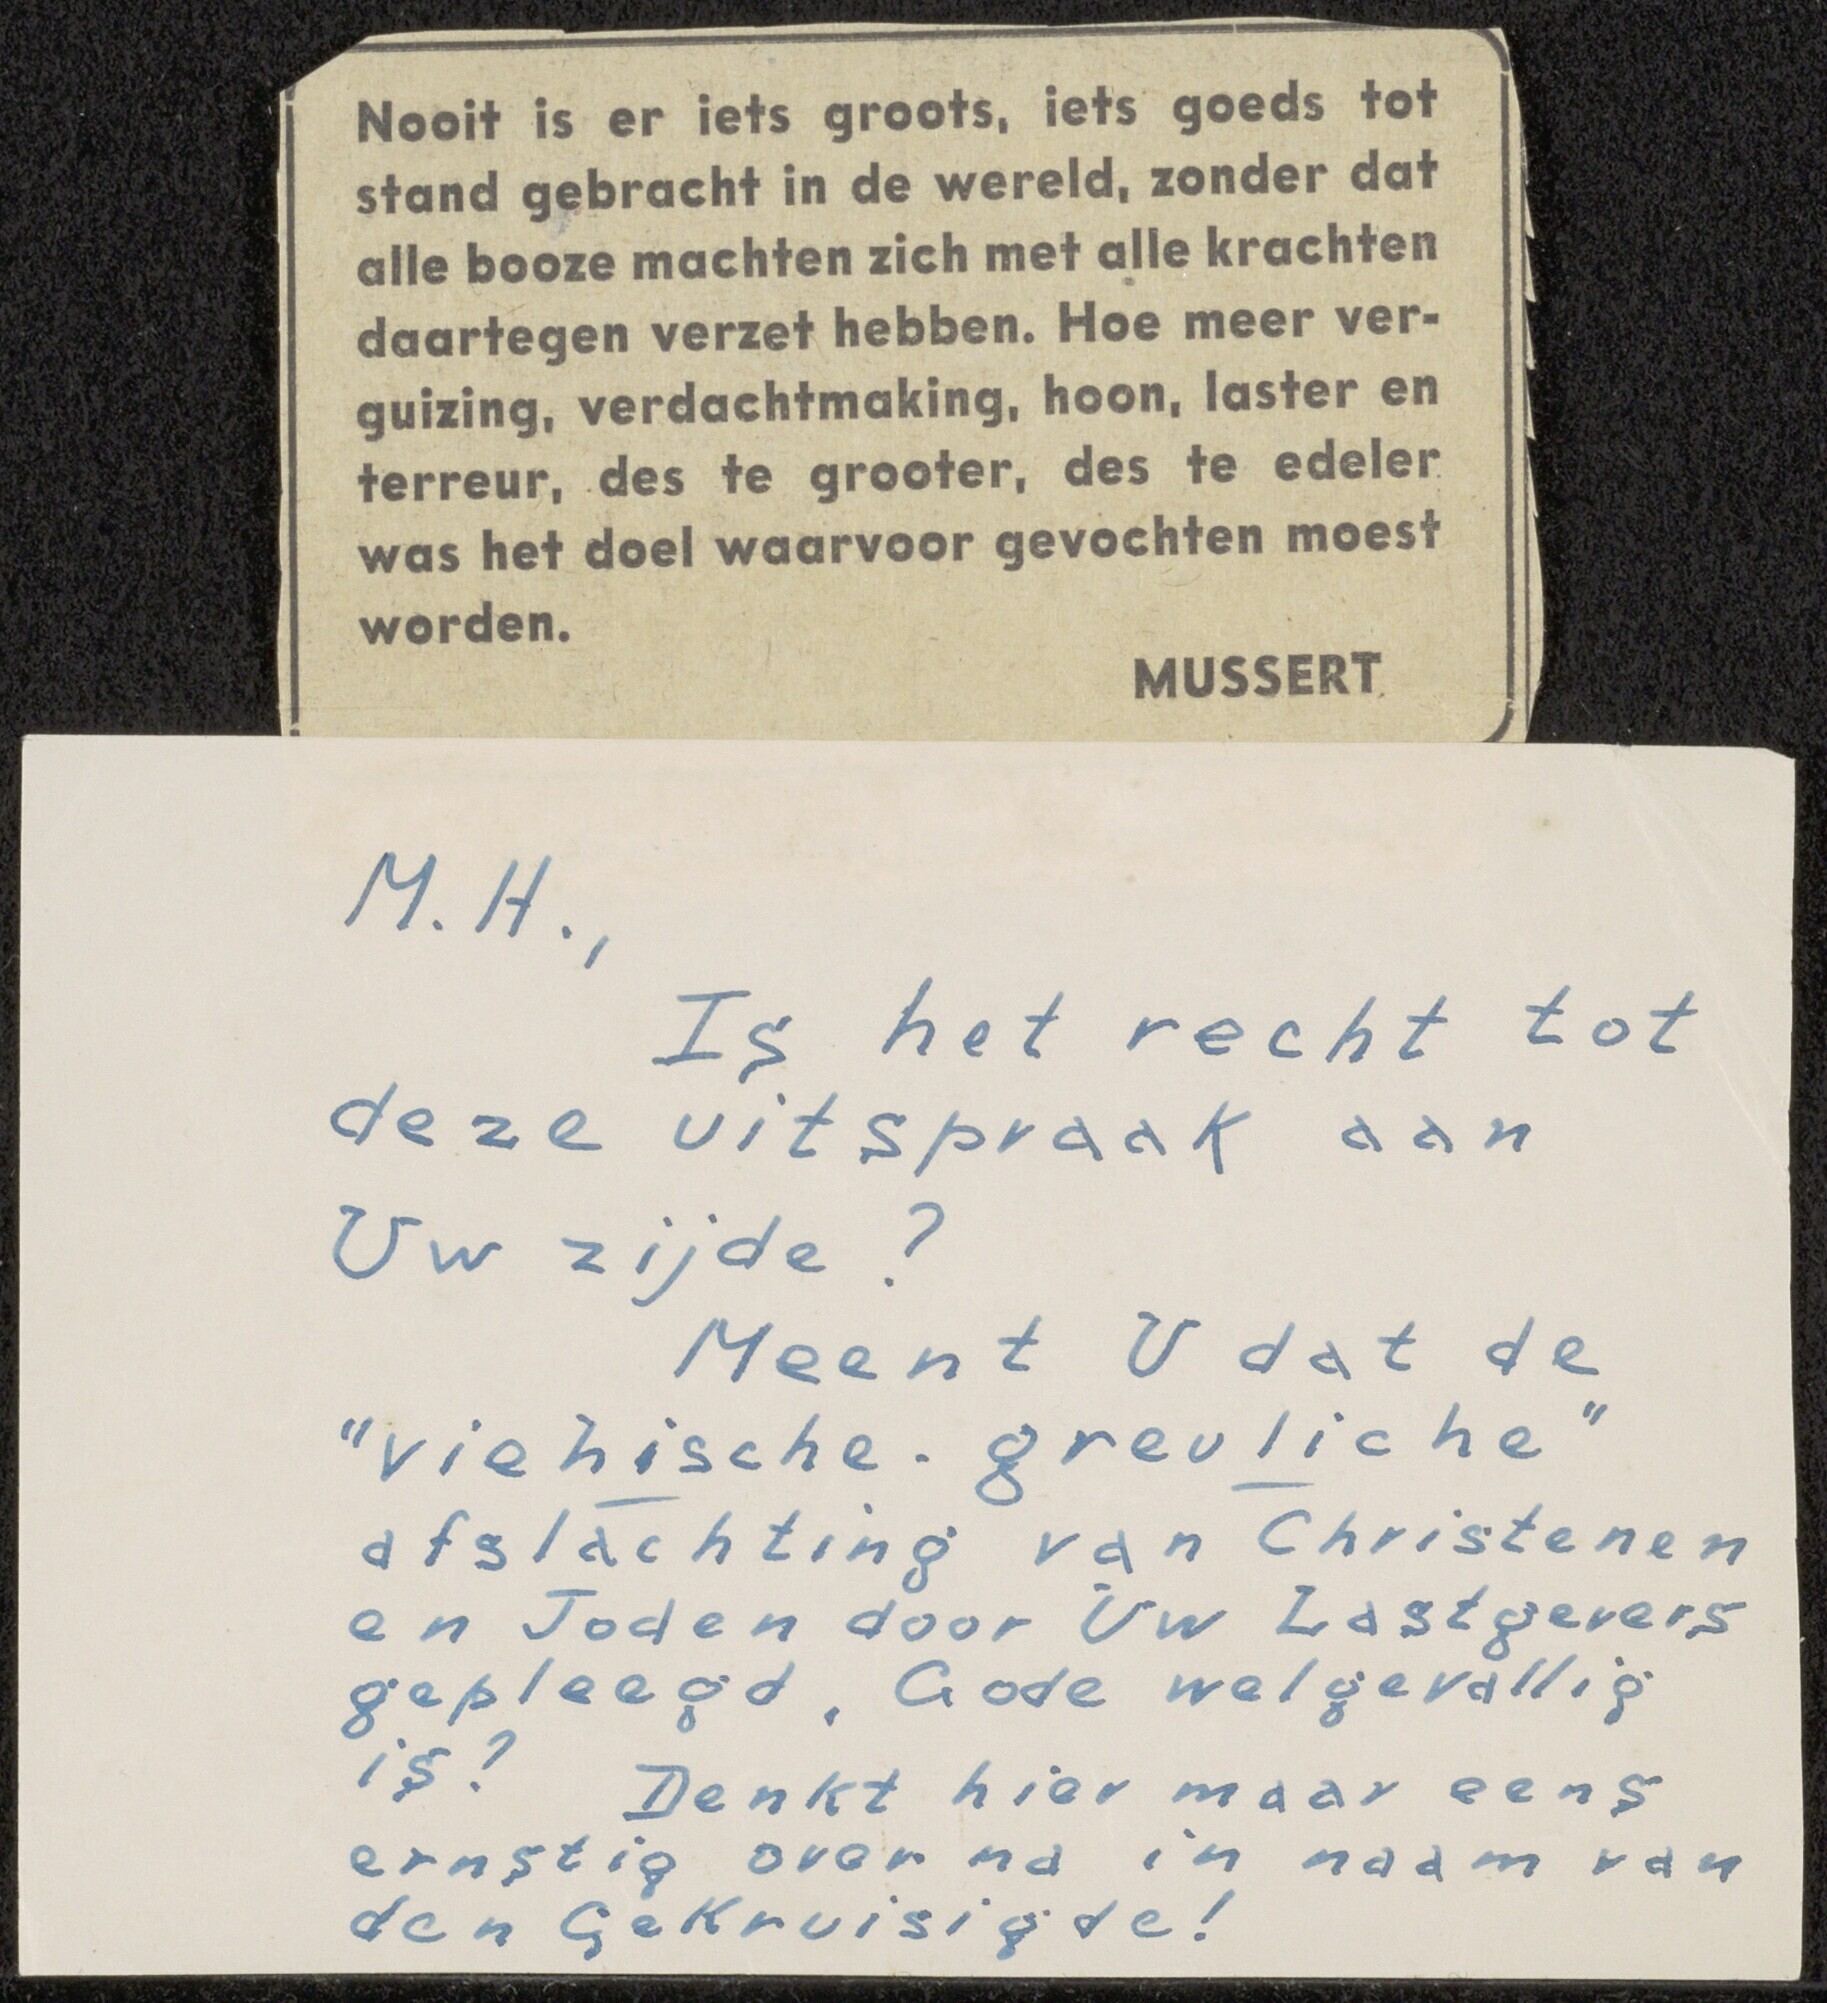 Nooit is er iets groots, iets goeds tot
stand gebracht in de wereld, zonder dat
alle booze machten zich met alle krachten
daartegen verzet hebben. Hoe meer ver-
guizing, verdachtmaking, hoon, laster en
terreur, des te grooter, des te edeler
was het doel waarvoor gevochten moest
worden.
MUSSERT
M.H.,
Is het recht tot
deze uitspraak aan
Uw zijde?
Meent U dat de
"viehische - greuliche"
afslachting van Christenen
en Joden door Uw Lastgevers
gepleegd, Gode welgevallig
is? Denkt hier maar eens
ernstig over na in naam van
den Gekruisigde!